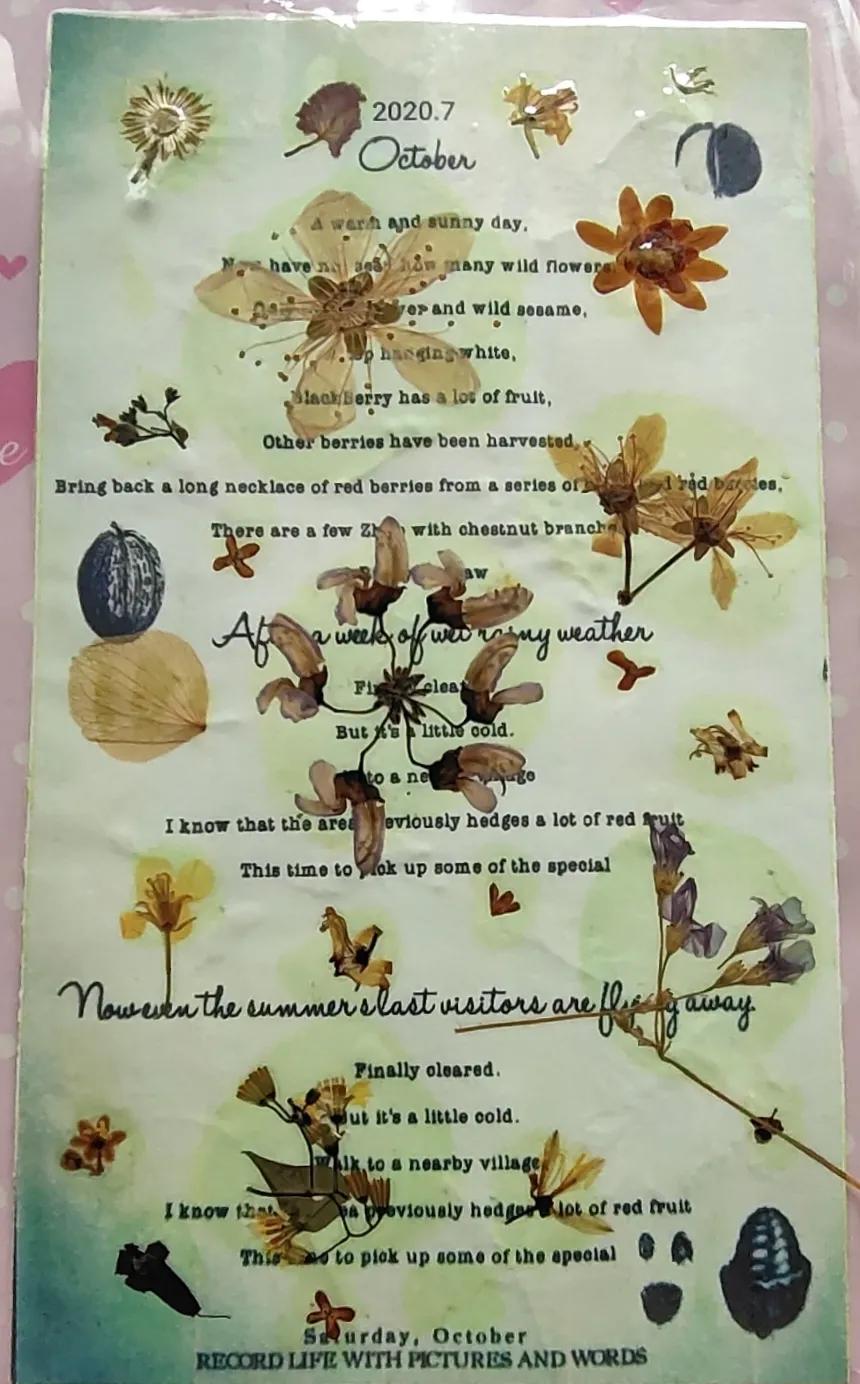 2020.7
October
A warm and sunny day,
have many wild flowers
and wild sesame,
hanging white,
BlackBerry has a lot of fruit,
Other berries have been harvested,
Bring back a long necklace of red berries from a series of red berries,
There are a few with chestnut branche
aw
After a week of wet rainy weather
Finally clea
But it's a little cold.
to a ne
I know that the area previously hedges a lot of red fruit
This time to pick up some of the special
Now even the summer's last visitors are flying away.
Finally cleared.
But it's a little cold.
Walk to a nearby village
I know that previously hedges a lot of red fruit
This to pick up some of the special
Saturday, October
RECORD LIFE WITH PICTURES AND WORDS
e